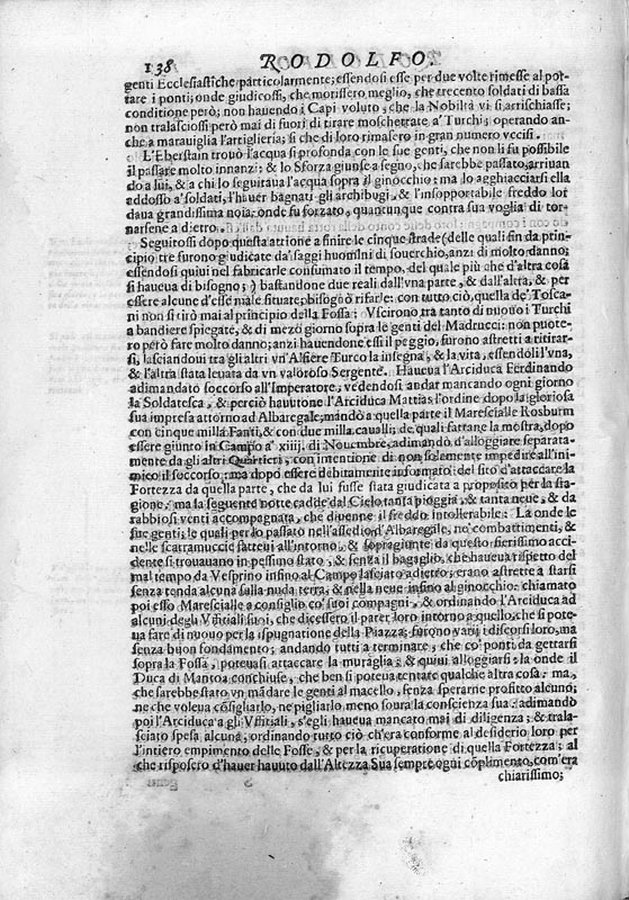 138 RODOLFO.
genti Ecclesiastiche particolarmente; essendosi esse per due volte rimesse al por-
tare i ponti; onde giudicossi, che morissero meglio, che trecento soldati di bassa
conditione però; non hauendo i Capi voluto, che la Nobiltà vi si arrischiasse;
non tralasciossi però mai di fuori di tirare moschettate a' Turchi; operando an-
che a marauiglia l'artiglieria; si che di loro rimasero in gran numero vccisi.
L'Eberstain trouò l'acqua si profonda con le sue genti, che non li fu possibile
il passare molto innanzi: & lo Sforza giunse a segno, che sarebbe passato, arriuan
do a lui, & a chi lo seguitaua l'acqua sopra il ginocchio: ma lo agghiacciarsi ella
addosso a' soldati, l'hauer bagnati gli archibugi, & l'insopportabile freddo lor
daua grandissima noia, onde fu forzato, quantunque contra sua voglia di tor-
narsene a dietro.
Seguitossi dopo questa attione a finire le cinque strade (delle quali fin da prin-
cipio tre furono giudicate da' saggi huomini di souerchio, anzi di molto danno;
essendosi quiui nel fabricarle consumato il tempo, del quale più che d'altra cosa
si haueua di bisogno;) bastandone due reali dall'vna parte, & dall'altra, & per
essere alcune d'esse male situate, bisognò rifarle: con tutto ciò, quella de' Tosca-
ni non si tirò mai al principio della Fossa: Vscirono tra tanto di nuouo i Turchi
a bandiere spiegate, & di mezo giorno sopra le genti del Madrucci: non puote-
ro però fare molto danno; anzi hauendone essi il peggio, furono astretti a ritirar-
si, lasciandoui tra gli altri vn'Alfiere Turco la insegna, & la vita, essendoli l'vna,
& l'altra stata leuata da vn valoroso Sergente. Haueua l'Arciduca Ferdinando
adimandato soccorso all'Imperatore, vedendosi andar mancando ogni giorno
la Soldatesca, & perciò hauutone l'Arciduca Mattias l'ordine dopo la gloriosa
sua impresa attorno ad Albaregale, mandò a quella parte il Maresciallo Rosburm
con cinque milla Fanti, & con due milla caualli; de quali fattane la mostra, dopo
essere giunto in Campo a' xiiij. di Nouembre, adimandò d'alloggiare separata-
mente da gli altri Quartieri, con intentione di non solemente impedire all'ini-
mico il soccorso; ma dopo essere debitamente informato del sito d'attaccare la
Fortezza da quella parte, che da lui fusse stata giudicata a proposito per la sta-
gione: ma la seguente notte cadde dal Cielo tanta pioggia, & tanta neue, & da
rabbiosi venti accompagnata, che diuenne il freddo intollerabile: La onde le
sue genti; le quali per lo passato nell'assedio d'Albaregale, ne' combattimenti, &
nelle scaramuccie fatteui all'intorno, & sopragiunte da questo fierissimo acci-
dente si trouauano in pessimo stato, & senza il bagaglio, che haueua rispetto del
mal tempo da Vesprino infino al Campo lasciato adietro; erano astrette a starsi
senza tenda alcuna sulla nuda terra, & nella neue infino al ginocchio: chiamato
poi esso Maresciallo a consiglio co' suoi compagni, & ordinando l'Arciduca ad
alcuni degli Vfficiali suoi, che dicessero il parer loro intorno a quello, che si pote-
ua fare di nuouo per la ispugnatione della Piazza; furono varij i discorsi loro, ma
senza buon fondamento; andando tutti a terminare, che co' ponti da gettarsi
sopra la Fossa, poteuasi attaccare la muraglia; & quiui alloggiarsi: la onde il
Duca di Mantoa conchiuse, che ben si poteua tentare qualche altra cosa: ma,
che sarebbe stato vn mãdare le genti al macello, senza sperarne profitto alcuno;
ne che voleua cõsigliarlo, ne pigliarlo meno soura la conscienza sua: adimandò
poi l'Arciduca a gli Vffitiali, s'egli haueua mancato mai di diligenza; & trala-
sciato spesa alcuna, ordinando tutto ciò ch'era conforme al desiderio loro per
l'intiero empimento delle Fosse, & per la ricuperatione di quella Fortezza; al
che risposero d'hauer hauuto dall'Altezza Sua sempre ogni cõplimento, com'era
chiarissimo;